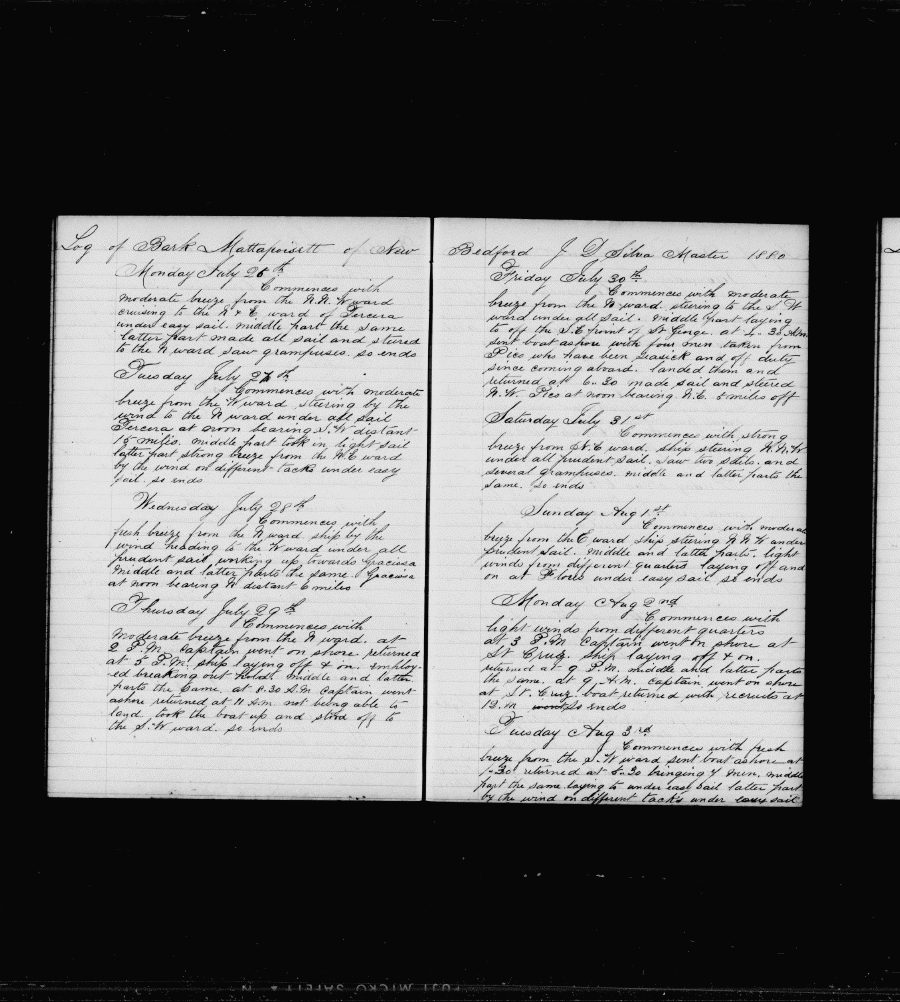 Log of Bark Mattapoisett of New
Monday July 26th
Commences with
moderate breeze from the N.N.W ward
cruising to the N & E ward of Tercera
under easy sail. middle part the same
latter part made all sail and steered
to the N ward saw grampuses. so ends
Tuesday July 27th
Commences with moderate
breeze from the W ward steering by the
wind to the N ward under all sail
Tercera at noon bearing S.W distant
15 miles. middle part took in light sail
latter part strong breeze from the N.E ward
by the wind on different tacks under easy
sail. so ends
Wednesday July 28th
Commences with
fresh breeze from the N ward ship by the
wind heading to the W ward under all
prudent sail working up towards Graciosa
middle and latter parts the same. Graciosa
at noon bearing W distant 6 miles
Thursday July 29th
Commences with
Moderate breeze from the N ward. at
2 P.M. captain went on shore. returned
at 5 P.M. ship laying off & on. employ-
ed breaking out hold. middle and latter
parts the same. at 8.30 A.M captain went
ashore returned at 11 A.M. not being able to
land. took the boat up and stood off to
the S.W ward. so ends
Bedford J D Silva Master 1880
Friday July 30th
Commences with moderate
breeze from the N ward. steering to the S.W
ward under all sail. middle part laying
to off the S.E point of St Gorge. at 4-30 A.M.
sent boat ashore with four men taken from
Pico who have been seasick and off duty
since coming aboard. landed them and
returned at 6-30 made sail and steered
N.W. Pico at noon bearing N.E. 5 miles off
Saturday July 31st
Commences with strong
breeze from N.E ward. ship steering W.N.W
under all prudent sail. saw two sails. and
several grampuses. middle and latter parts the
same. so ends
Sunday Aug 1st
Commences with moderate
breeze from the E ward ship steering N N W under
prudent sail. middle and latter parts. light
winds from different quarters laying off and
on at Flores under easy sail so ends
Monday Aug 2nd
Commences with
light winds from different quarters
at 3 P.M. captain went on shore at
St Cruz. ship laying off & on.
returned at 9 P.M. middle and latter parts
the same. at 9 A.M. captain went on shore
at St. Cruz. boat returned with recruits at
12. M so ends
Tuesday Aug 3rd
Commences with fresh
breeze from the S.W ward sent boat ashore at
1-30 returned at 8-30 bringing 7 men. middle
part the same laying to under easy sail latter part
by the wind on different tacks under easy sail
FUJI MICRO SAFETY